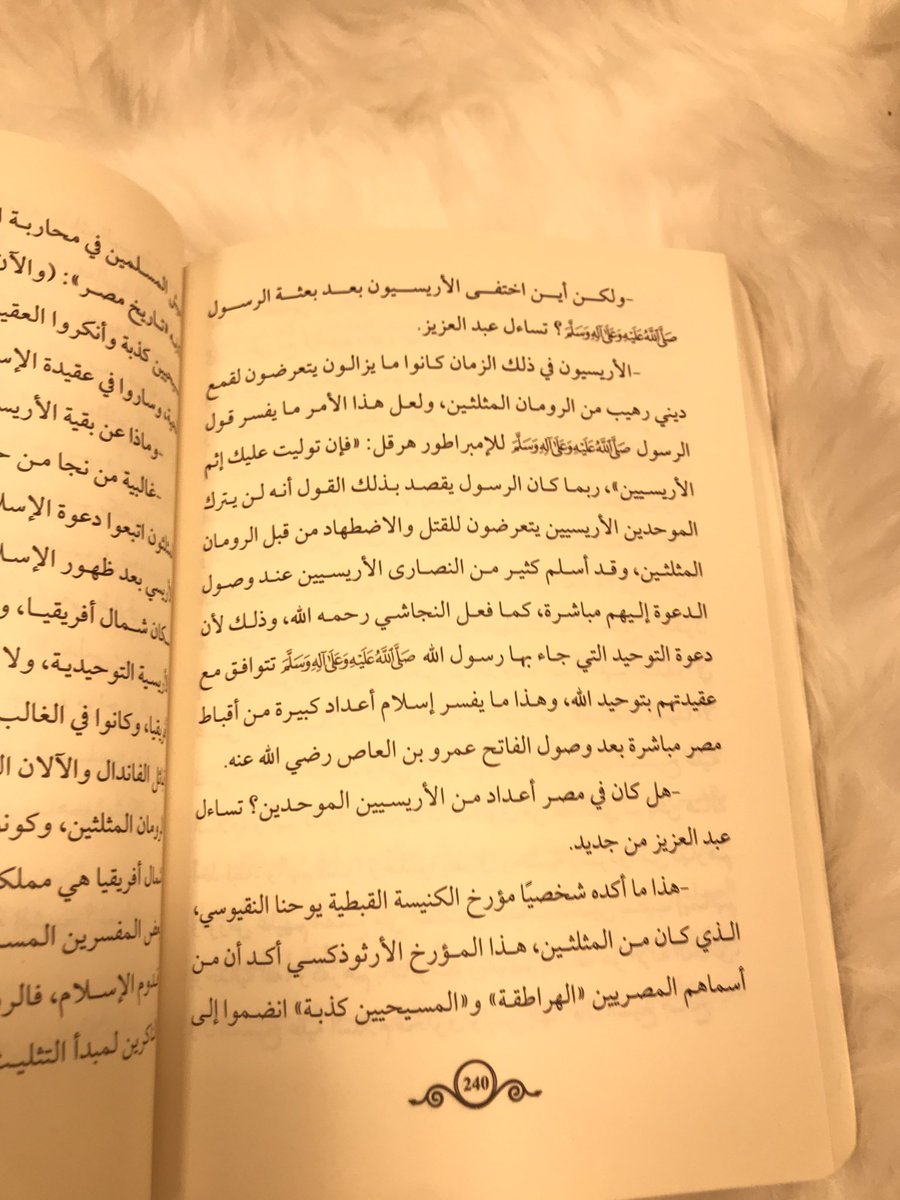 -ولكن أين اختفى الأريسيون بعد بعثة الرسول
ﷺ؟ تساءل عبد العزيز.
-الأريسيون في ذلك الزمان كانوا ما يزالون يتعرضون لقمع
ديني رهيب من الرومان المثلثين، ولعل هذا الأمر ما يفسر قول
الرسول صَلَّى اللَّهُ عَلَيْهِ وَعَلَى آلِهِ وَسَلَّمَ للإمبراطور هرقل: «فإن توليت عليك إثم
الأريسيين»، ربما كان الرسول يقصد بذلك القول أنه لن يترك
الموحدين الأريسيين يتعرضون للقتل والاضطهاد من قبل الرومان
المثلثين، وقد أسلم كثير من النصارى الأريسيين عند وصول
الدعوة إليهم مباشرة، كما فعل النجاشي رحمه الله، وذلك لأن
دعوة التوحيد التي جاء بها رسول الله صَلَّى اللَّهُ عَلَيْهِ وَعَلَى آلِهِ وَسَلَّمَ تتوافق مع
عقيدتهم بتوحيد الله، وهذا ما يفسر إسلام أعداد كبيرة من أقباط
مصر مباشرة بعد وصول الفاتح عمرو بن العاص رضي الله عنه.
-هل كان في مصر أعداد من الأريسيين الموحدين؟ تساءل
عبد العزيز من جديد.
-هذا ما أكده شخصيًا مؤرخ الكنيسة القبطية يوحنا النقيوسي،
الذي كان من المثلثين، هذا المؤرخ الأرثوذكسي أكد أن من
أسماهم المصريين «الهراطقة» و«المسيحيين كذبة» انضموا إلى
240
المسلمين في محاربة
«تاريخ مصر»: (والآن
كذبة وأنكروا العقي
وساروا في عقيدة الإس
-وماذا عن بقية الأريس
-غالبية من نجا من
اتبعوا دعوة الإسلا
بعد ظهور الإسلا
شمال أفريقيا، و
التوحيدية، ولا
وكانوا في الغالب
الفاندال والآلان ال
المثلثين، وكونو
أفريقيا هي مملك
المفسرين المسـ
الإسلام، فالر
لمبدأ التثليث